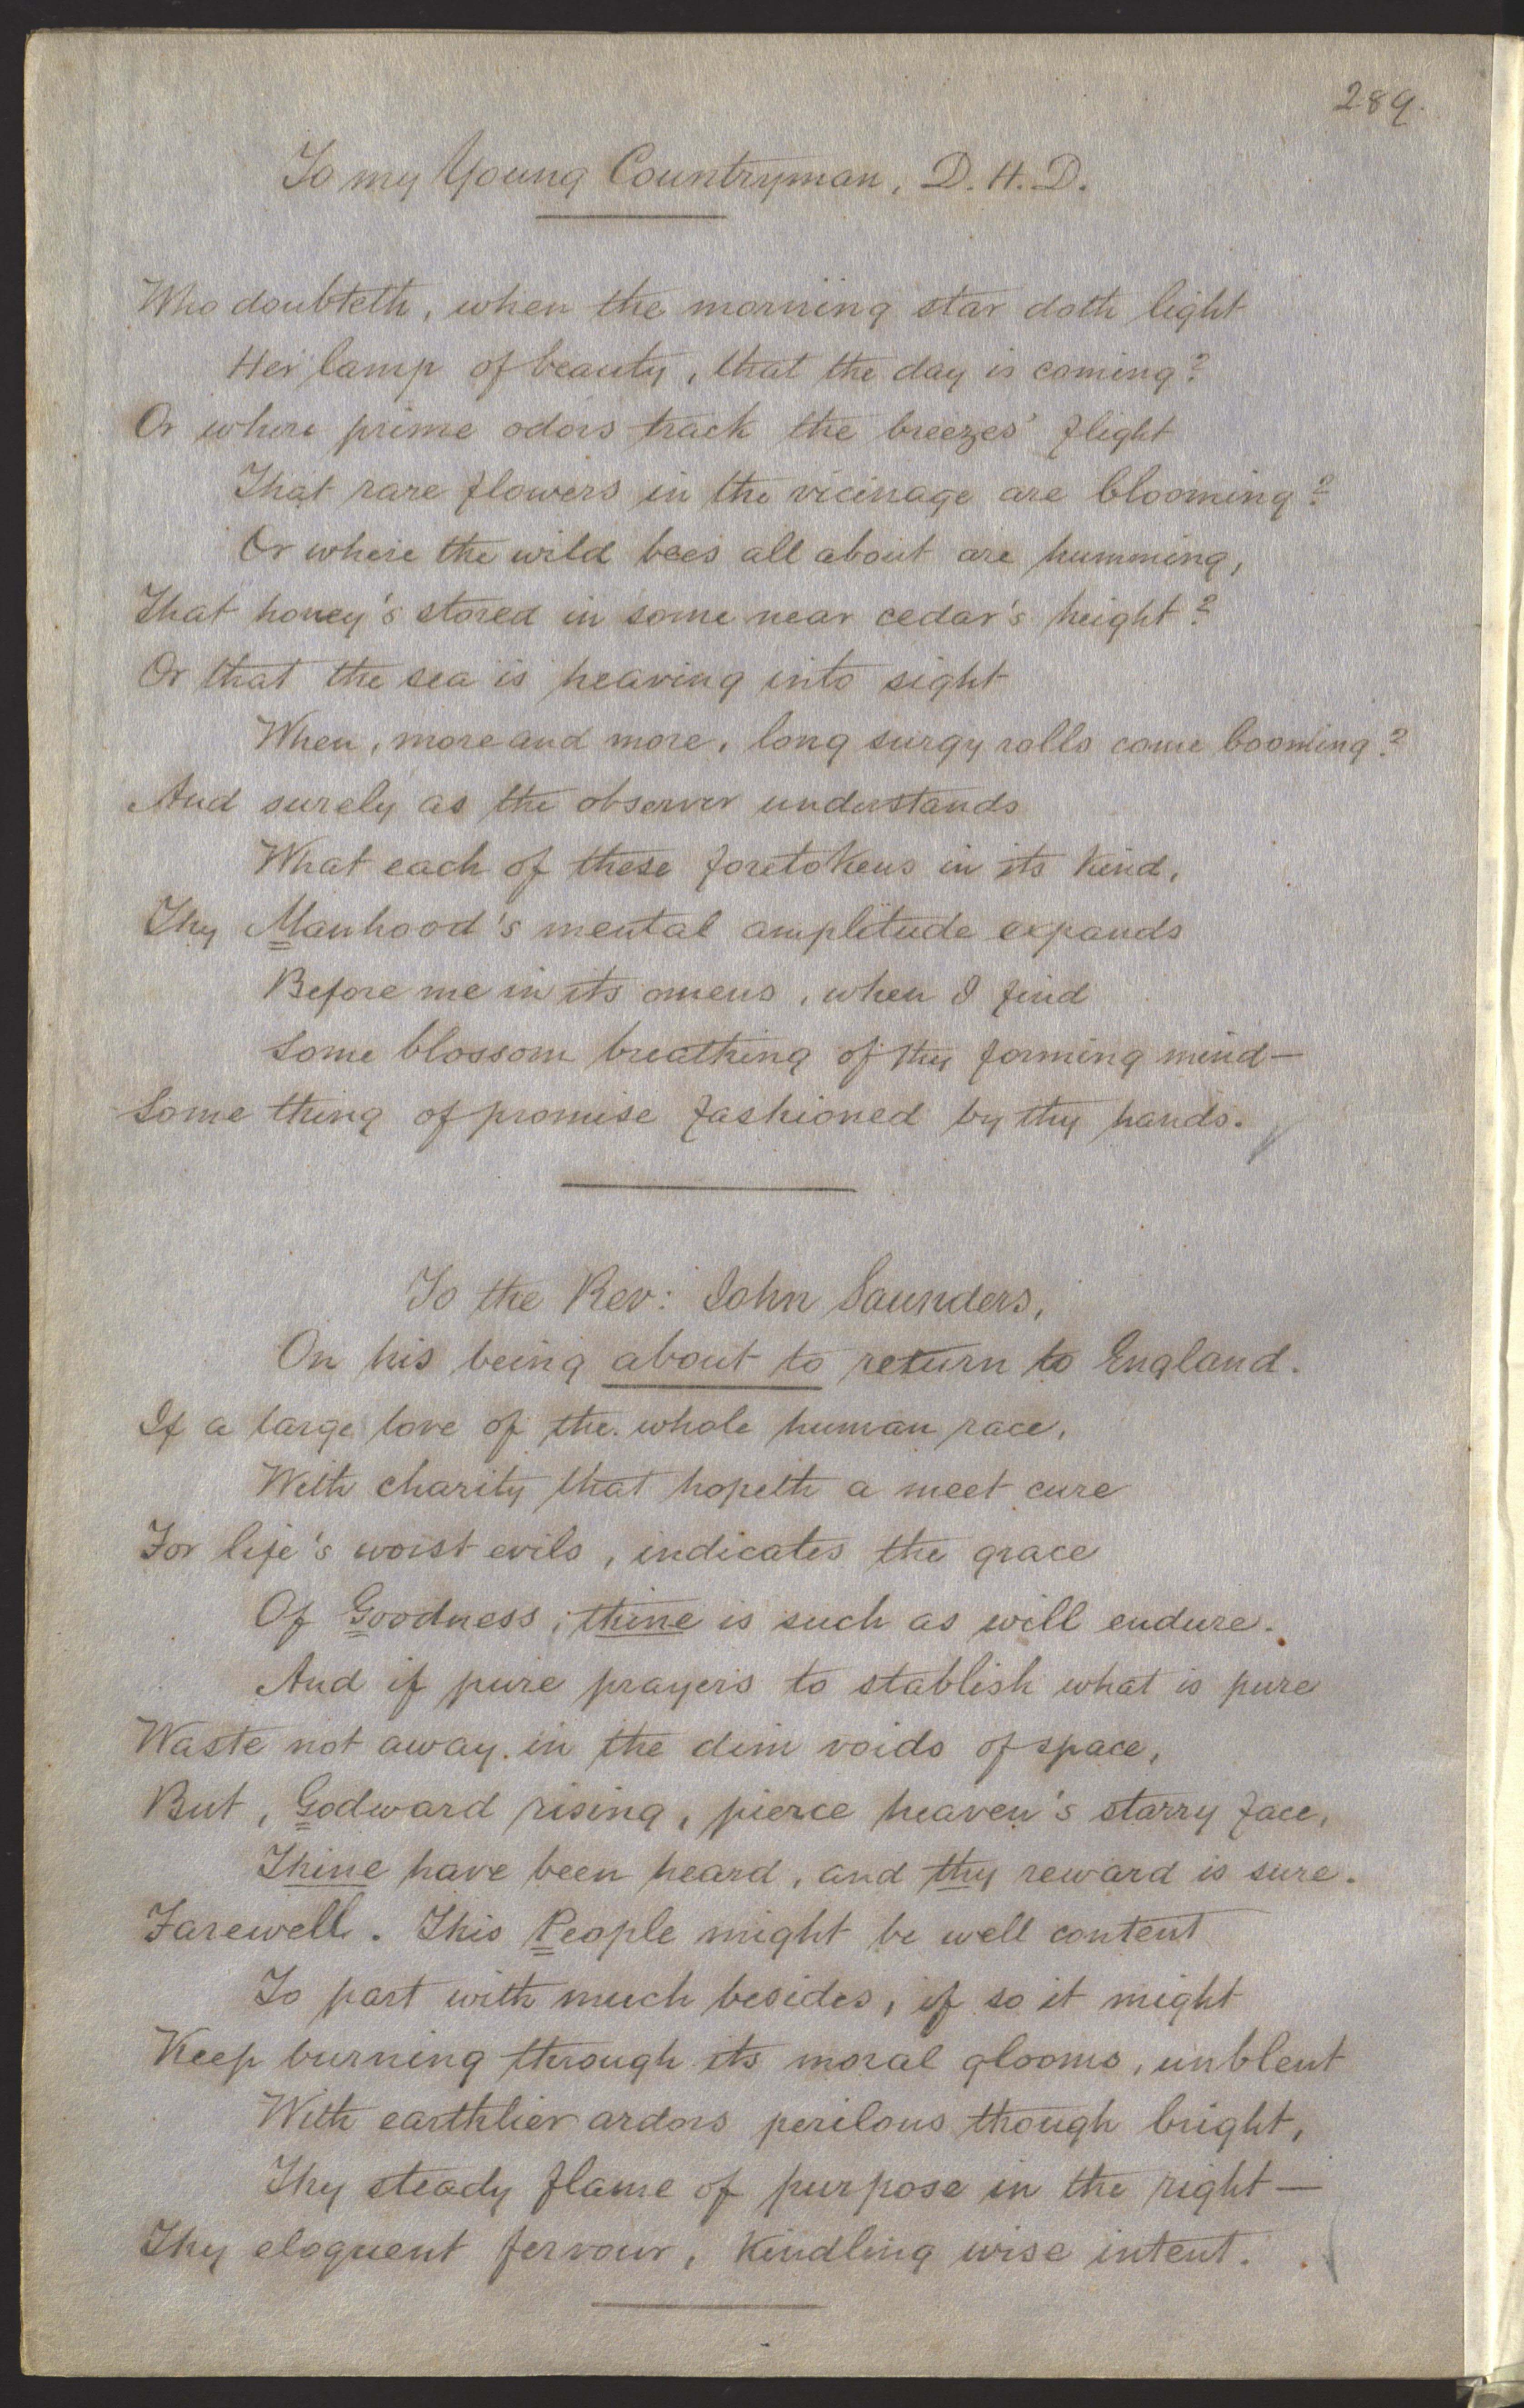 289.
To my Young Countryman, D. H. D.
Who doubteth, when the morning star doth light
Her lamp of beauty, that the day is coming?
Or where prime odors track the breezes' flight
That rare flowers in the vicinage are blooming?
Or where the wild bees all about are humming,
That honey's stored in some near cedar's height?
Or that the sea is heaving into sight
When, more and more, long surgy rolls come booming?
And surely as the observer understands
What each of these foretokens in its kind,
Thy Manhood's mental amplitude expands
Before me in its omens, when I find
Some blossom breathing of thy forming mind—
Some thing of promise fashioned by thy hands.
To the Rev: John Saunders,
On his being about to return to England.
If a large love of the whole human race,
With charity that hopeth a meet cure
For life's worst evils, indicates the grace
Of Goodness; thine is such as will endure.
And if pure prayers to stablish what is pure
Waste not away in the dim voids of space,
But, Godward rising, pierce heaven's starry face,
Thine have been heard, and thy reward is sure.
Farewell. This People might be well content
To part with much besides, if so it might
Keep burning through its moral glooms, unblent
With earthlier ardors perilous though bright,
Thy steady flame of purpose in the right—
Thy eloquent fervour, kindling wise intent.